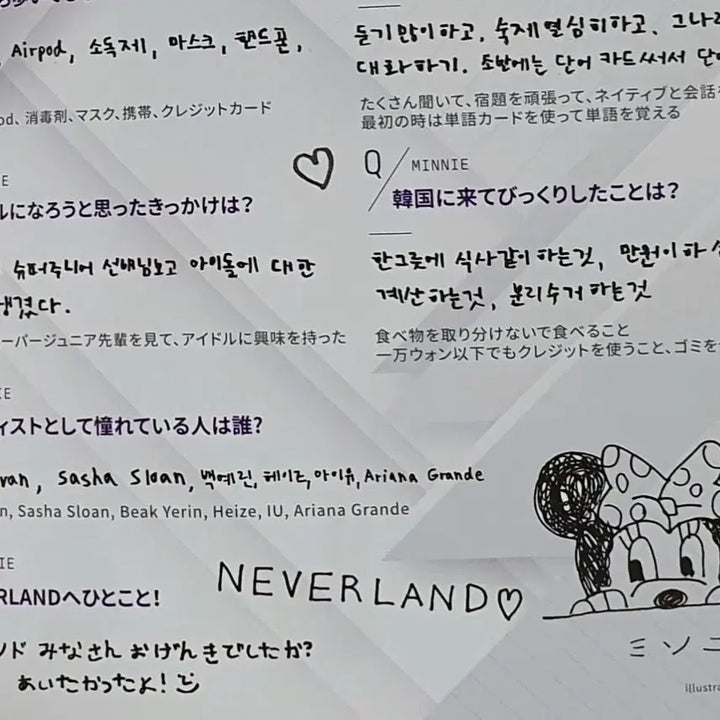 Airpod, 소독제, 마스크, 핸드폰,
od、消毒剤、マスク、携帯、クレジットカード
듣기 많이 하고, 숙제 열심히하고, 그나
대화하기. 초반에는 단어 카드 써서 단
たくさん聞いて、宿題を頑張って、ネイティブと会話
最初の時は単語カードを使って単語を覚える
E
ルになろうと思ったきっかけは?
슈퍼주니어 선배님보고 아이돌에 대한
생겼다.
ーパージュニア先輩を見て、アイドルに興味を持った
♡ Q MINNIE
韓国に来てびっくりしたことは?
한그릇에 식사같이 하는것, 만원이하
계산하는것, 분리수거 하는것
食べ物を取り分けないで食べること
一万ウォン以下でもクレジットを使うこと、ゴミを
IE
ィストとして憧れている人は誰?
van, Sasha Sloan, 백예린, 헤이즈, 아이유, Ariana Grande
n, Sasha Sloan, Beak Yerin, Heize, IU, Ariana Grande
IE
RLANDへひとこと!
NEVERLAND♡
ンド みなさん おげんきでしたか?
あいたかったよ!
ミソニ
illustra